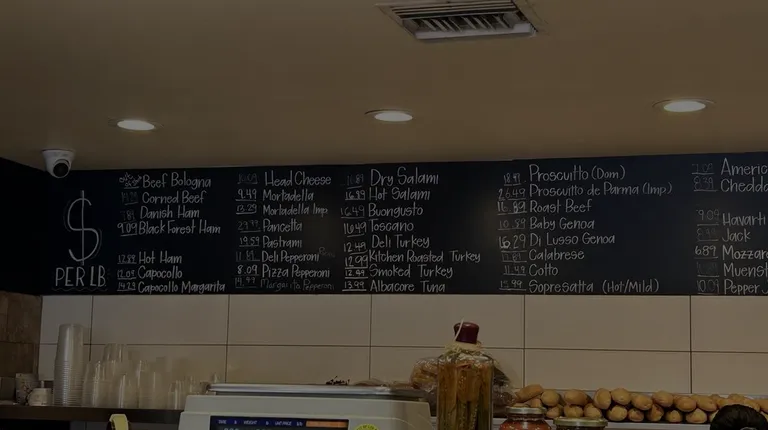 $
PER LB
Beef Bologna
Corned Beef
Danish Ham
9.09 Black Forest Ham
12.89 Hot Ham
12.09 Capocollo
14.29 Capocollo Margarita
Head Cheese
9.49 Mortadella
13.29 Mortadella Imp
Pancetta
19.59 Pastrami
Deli Pepperoni
8.09 Pizza Pepperoni
Margarita Pepperoni
Dry Salami
16.39 Hot Salami
16.49 Buongusto
16.49 Toscano
12.49 Deli Turkey
12.99 Kitchen Roasted Turkey
12.49 Smoked Turkey
13.99 Albacore Tuna
18.91 Proscuitto (Dom)
Proscuitto de Parma (Imp)
16.89 Roast Beef
Baby Genoa
16.29 Di Lusso Genoa
Calabrese
11.49 Cotto
Sopresatta (Hot/Mild)
Americ
Chedda
9.09 Havarti
Jack
6.89 Mozzar
Muenst
Pepper J